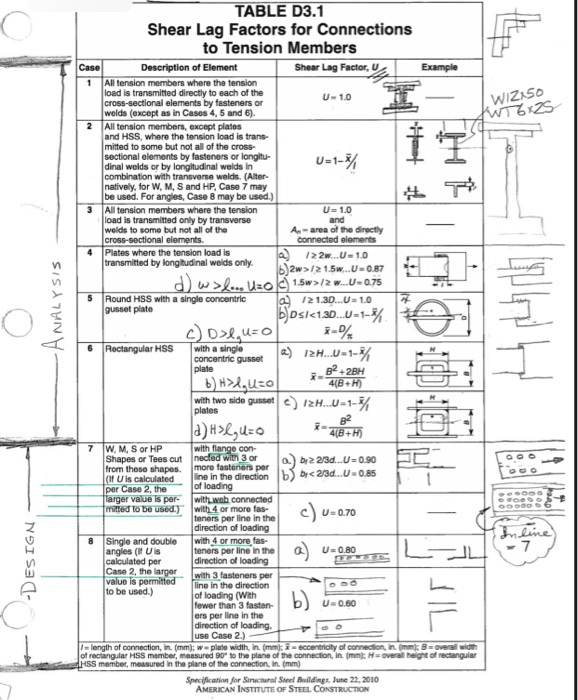 TABLE D3.1
Shear Lag Factors for Connections
to Tension Members
Case Description of Element Shear Lag Factor, U Example
1 All tension members where the tension
load is transmitted directly to each of the
cross-sectional elements by fasteners or
welds (except as in Cases 4, 5 and 6).
U = 1.0
W12x50
WT6x25
2 All tension members, except plates
and HSS, where the tension load is trans-
mitted to some but not all of the cross-
sectional elements by fasteners or longitu-
dinal welds or by longitudinal welds in
combination with transverse welds. (Alter-
natively, for W, M, S and HP, Case 7 may
be used. For angles, Case 8 may be used.)
U=1-x̄/l
3 All tension members where the tension
load is transmitted only by transverse
welds to some but not all of the
cross-sectional elements.
U = 1.0
and
Aₙ = area of the directly
connected elements
4 Plates where the tension load is
transmitted by longitudinal welds only.
a) l ≥ 2w...U = 1.0
b) 2w > l ≥ 1.5w...U = 0.87
c) 1.5w > l ≥ w...U = 0.75
d) w>l... U=0
5 Round HSS with a single concentric
gusset plate
a) l ≥ 1.3D...U = 1.0
b) D ≤ l < 1.3D...U = 1-x̄/l
x̄ = D/π
c) D>l, U=0
6 Rectangular HSS
with a single
concentric gusset
plate
a) l ≥ H...U = 1-x̄/l
x̄ = B² + 2BH
4(B + H)
b) H>l, U=0
with two side gusset
plates
c) l ≥ H...U = 1-x̄/l
x̄ = B²
4(B + H)
d) H>l, U=0
H
B
7 W, M, S or HP
Shapes or Tees cut
from these shapes.
(If U is calculated
per Case 2, the
larger value is per-
mitted to be used.)
with flange con-
nected with 3 or
more fasteners per
line in the direction
of loading
a) bf ≥ 2/3d...U = 0.90
b) bf < 2/3d...U = 0.85
with web connected
with 4 or more fas-
teners per line in the
direction of loading
c) U = 0.70
Inline
= 7
8 Single and double
angles (If U is
calculated per
Case 2, the larger
value is permitted
to be used.)
with 4 or more fas-
teners per line in the
direction of loading
a) U = 0.80
with 3 fasteners per
line in the direction
of loading (With
fewer than 3 fasten-
ers per line in the
direction of loading,
use Case 2.)
b) U = 0.60
l = length of connection, in. (mm); w = plate width, in. (mm); x̄ = eccentricity of connection, in. (mm); B = overall width
of rectangular HSS member, measured 90° to the plane of the connection, in. (mm); H = overall height of rectangular
HSS member, measured in the plane of the connection, in. (mm)
Specification for Structural Steel Buildings, June 22, 2010
AMERICAN INSTITUTE OF STEEL CONSTRUCTION
ANALYSIS
DESIGN